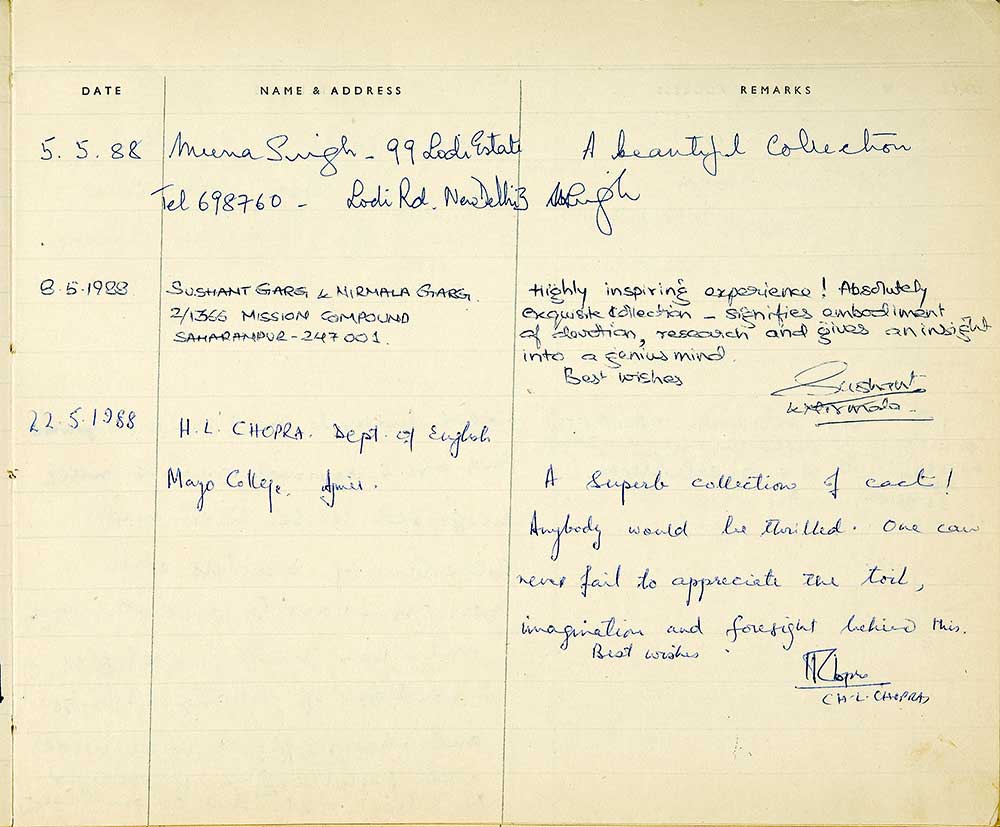 DATE NAME & ADDRESS REMARKS
5. 5. 88 Meena Singh - 99 Lodi Estate A beautiful Collection
Tel 698760 - Lodi Rd. New Delhi 3 Singh
8.5.1988 SUSHANT GARG & NIRMALA GARG.
2/1366 MISSION COMPOUND
SAHARANPUR - 247001.
Highly inspiring experience! Absolutely
exquisite collection - signifies embodiment
of devotion, research and gives an insight
into a genius mind.
Best wishes
Sushant
& Nirmala.
22.5.1988 H.L. CHOPRA. Dept. of English
Mayo College, Ajmer.
A superb collection of cacti!
Anybody would be thrilled. One can
never fail to appreciate the toil,
imagination and foresight behind this.
Best wishes
HLChopra
(H.L. CHOPRA)